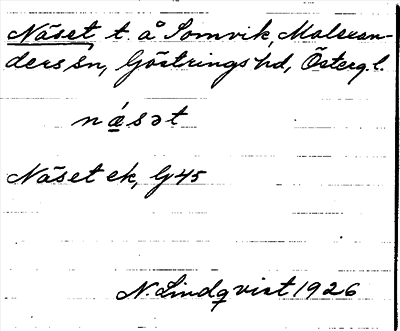 Näset, t. å Somvik, Malexan-
ders sn, Göstrings hd, Österg.l.
næ̀sət
Näset ek, G 45
N. Lindqvist 1926